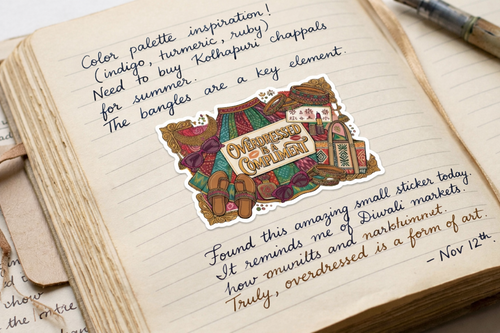 Color palette inspiration!
(indigo, turmeric, ruby)
Need to buy Kolhapuri chappals
for summer.
The bangles are a key element.
OVERDRESSED
IS A
COMPLIMENT
Found this amazing small sticker today.
It reminds me of Diwali markets.
how and
Truly, overdressed is a form of art.
– Nov 12th.
how
the